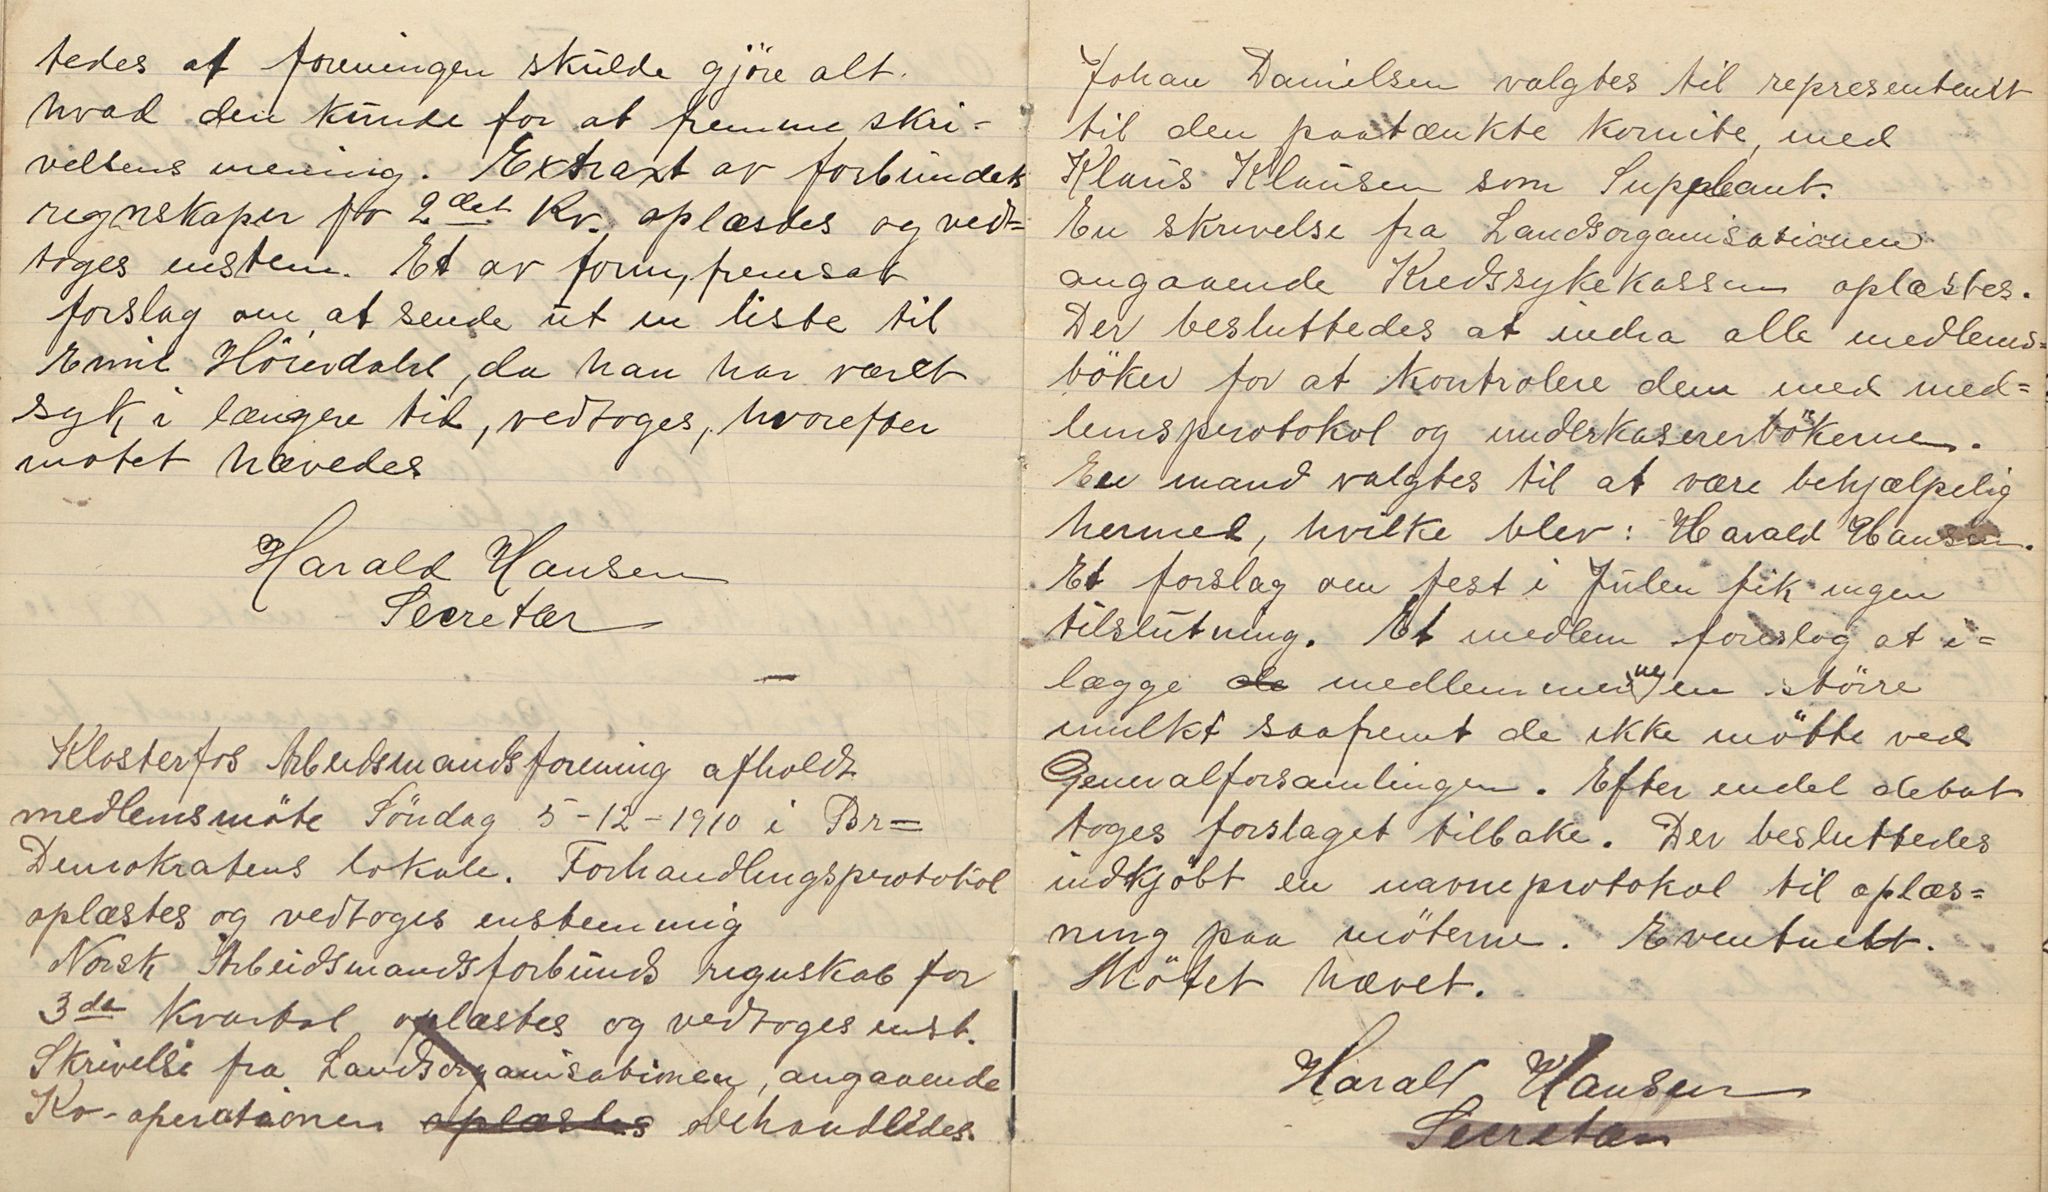 tedes at foreningen skulde gjöre alt
hvad den kunde for at fremme skri-
velsens mening. Extraxt av forbundets
regnskaper for 2det Kv. oplæstes og ved-
toges enstem. Et av form, fremsat
forslag om at sende ut en liste til
Emil Höierdahl, da han har været
syk i længere tid, vedtoges, hvorefter
motet hævedes
Harald Hansen
Secretær
Klosterfos Arbeidsmandsforening afholdt
medlemsmöte Söndag 5-12-1910 i Br=
Demokratens lokale. Forhandlingsprotokol
oplæstes og vedtoges enstemmig
Norsk Arbeidsmandsforbunds regnskab for
3de Kvartal oplæstes og vedtoges enst.
Skrivelse fra Landsorganisationen, angaaende
Ko-operationen oplæstes behandledes.
Johan Danielsen valgtes til representent
til den paatænkte komite, med
Klaus Klausen som Suppleant.
En skrivelse fra Landsorganisationen
angaaende Kredssykekassen oplæstes.
Der besluttedes at indra alle medlems=
böker for at kontrolere dem med med=
lemsprotokol og underkasererbökerne.
En mand valgtes til at være behjælpelig
hermed, hvilke blev: Harald Hansen.
Et forslag om fest i Julen fik ingen
tilslutning. Et medlem foreslog at i=
lægge de medlemmerne en större
mulkt saafremt de ikke mötte ved
Generalforsamlingen. Efter endel debat
toges forslaget tilbake. Der besluttedes
indkjöbt en navneprotokol til oplæs=
ning paa möterne. Eventuelt.
Mötet hævet.
Harald Hansen
Secretær